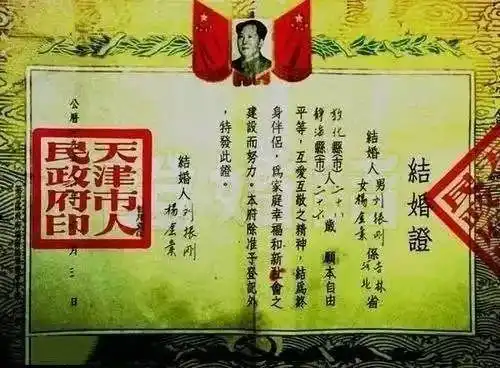 結婚證
結婚人 男刘振剛 係吉林省
女楊金業 河北
敦化縣(市)二十八歲 願本自由
靜海縣(市)二十六
平等,互愛互敬之精神,結爲終
身伴侶,爲家庭幸福和新社會之
建設而努力。本府除准予登記外
,特發此證。
結婚人 刘振剛
楊金業
公曆 月三日
天津市人
民政府印